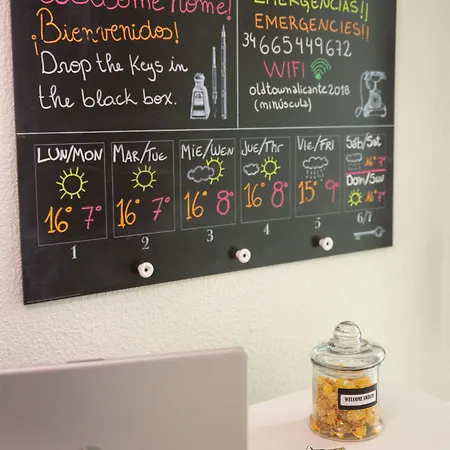 Welcome home!
¡Bienvenidos!
Drop the keys in
the black box.
EMERGENCIAS!!
EMERGENCIES!!
34 665449672
WIFI
oldtownalicante2018
(minúscula)
LUN/MON
16° 7°
1
MAR/TUE
16° 7°
2
MIE/WEN
16° 8°
3
JUE/THR
16° 8°
4
VIE/FRI
15° 9°
5
SÁB/SAT
16° 7°
DOM/SUN
16° 7°
6/7
WELCOME SWEETS